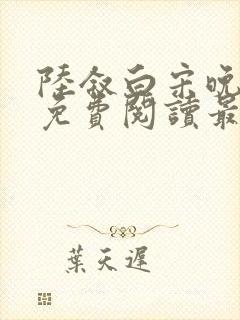 陸敘白宋晚
免費閱讀最
葉天遲